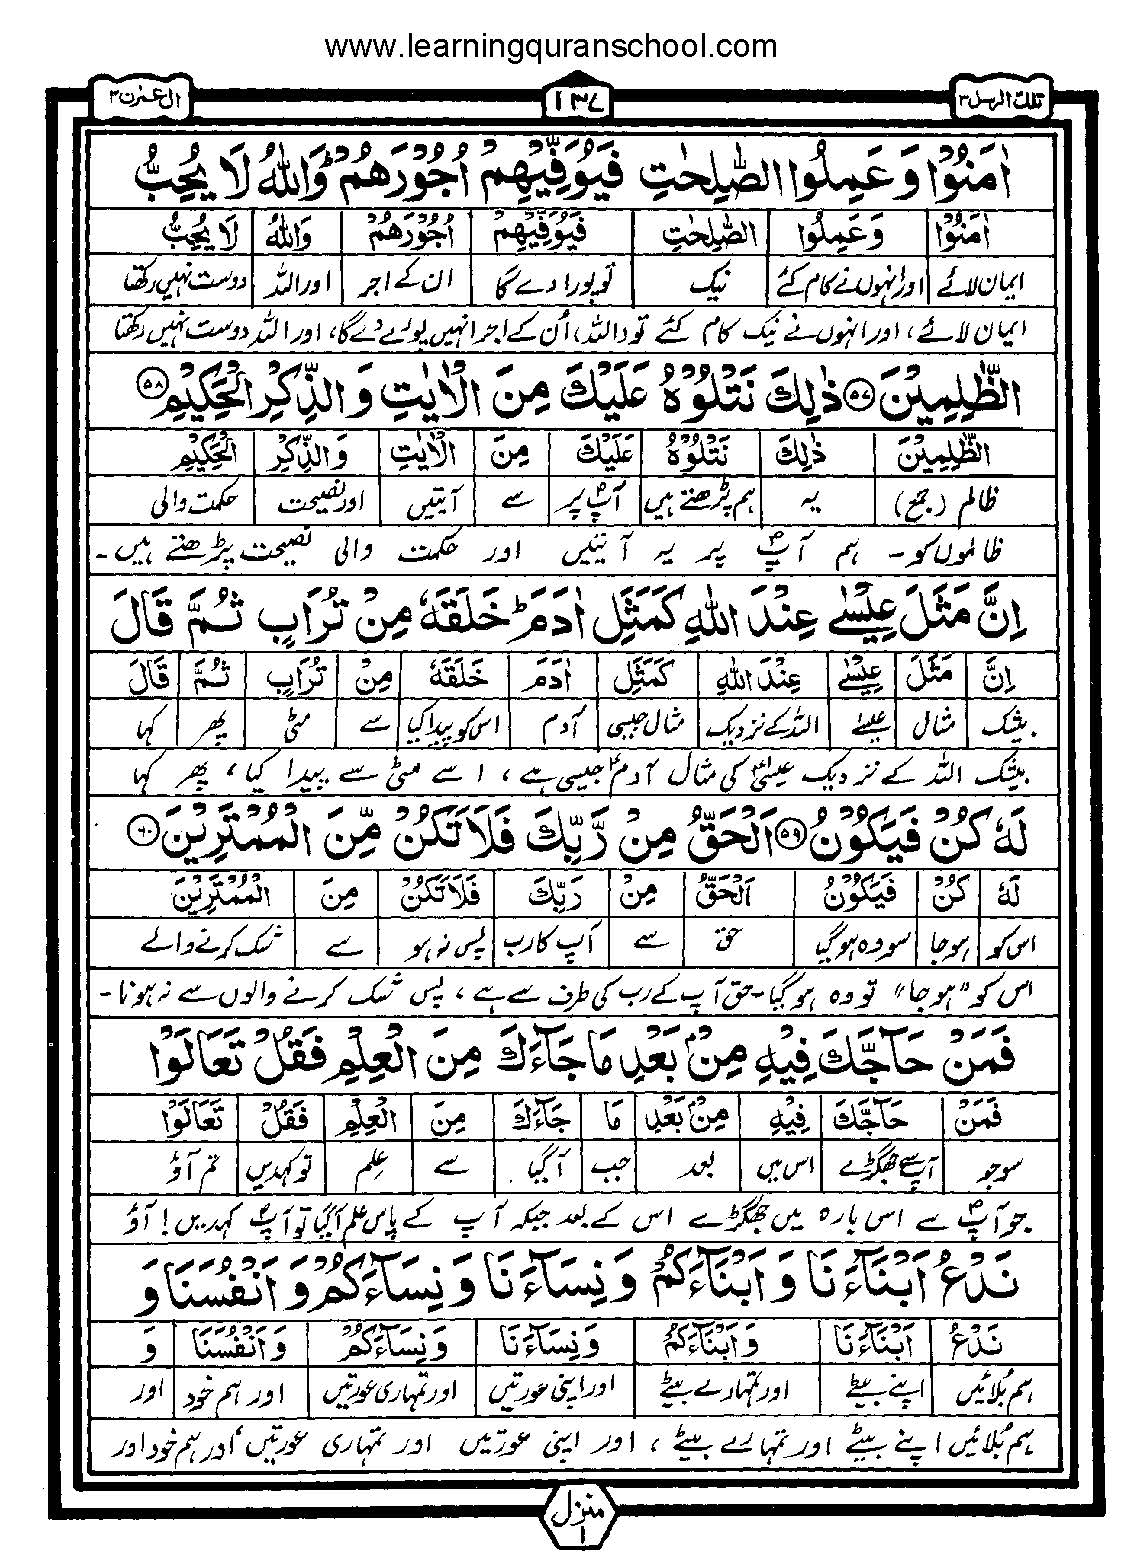 www.learningquranschool.com
تلك الرسل ۳
۱۳۷
ال عمرٰن ۳
اٰمَنُوْا وَعَمِلُوا الصّٰلِحٰتِ فَيُوَفِّيْهِمْ اُجُوْرَهُمْ ؕ وَاللّٰهُ لَا يُحِبُّ
اٰمَنُوْا وَعَمِلُوا الصّٰلِحٰتِ فَيُوَفِّيْهِمْ اُجُوْرَهُمْ وَاللّٰهُ لَا يُحِبُّ
ایمان لائے اور انہوں نے کام کئے نیک تو پورا دے گا ان کے اجر اور اللہ دوست نہیں رکھتا
ایمان لائے، اور انہوں نے نیک کام کئے تو (اللہ) اُن کے اجر انہیں پورے دے گا، اور اللہ دوست نہیں رکھتا
الظّٰلِمِيْنَ ۵۷ ذٰلِكَ نَتْلُوْهُ عَلَيْكَ مِنَ الْاٰيٰتِ وَالذِّكْرِ الْحَكِيْمِ ۵۸
الظّٰلِمِيْنَ ذٰلِكَ نَتْلُوْهُ عَلَيْكَ مِنَ الْاٰيٰتِ وَالذِّكْرِ الْحَكِيْمِ
ظالم (جمع) یہ ہم پڑھتے ہیں آپؐ پر سے آیتیں اور نصیحت حکمت والی
ظالموں کو۔ ہم آپؐ پر یہ آیتیں اور حکمت والی نصیحت پڑھتے ہیں۔
اِنَّ مَثَلَ عِيْسٰى عِنْدَ اللّٰهِ كَمَثَلِ اٰدَمَ ؕ خَلَقَهٗ مِنْ تُرَابٍ ثُمَّ قَالَ
اِنَّ مَثَلَ عِيْسٰى عِنْدَ اللّٰهِ كَمَثَلِ اٰدَمَ خَلَقَهٗ مِنْ تُرَابٍ ثُمَّ قَالَ
بیشک مثال عیسےٰ اللہ کے نزدیک مثال جیسی آدم اس کو پیدا کیا سے مٹی پھر کہا
بیشک اللہ کے نزدیک عیسیٰؑ کی مثال آدمؑ جیسی ہے، اسے مٹی سے پیدا کیا، پھر کہا
لَهٗ كُنْ فَيَكُوْنُ ۵۹ اَلْحَقُّ مِنْ رَّبِّكَ فَلَا تَكُنْ مِّنَ الْمُمْتَرِيْنَ ۶۰
لَهٗ كُنْ فَيَكُوْنُ اَلْحَقُّ مِنْ رَبِّكَ فَلَا تَكُنْ مِنَ الْمُمْتَرِيْنَ
اس کو ہو جا سو وہ ہو گیا حق سے آپ کا رب پس نہ ہو سے شک کرنے والے
اس کو "ہو جا" تو وہ ہو گیا۔ حق آپ کے رب کی طرف سے ہے، پس شک کرنے والوں سے نہ ہونا۔
فَمَنْ حَآجَّكَ فِيْهِ مِنْۢ بَعْدِ مَا جَآءَكَ مِنَ الْعِلْمِ فَقُلْ تَعَالَوْا
فَمَنْ حَآجَّكَ فِيْهِ مِنْۢ بَعْدِ مَا جَآءَكَ مِنَ الْعِلْمِ فَقُلْ تَعَالَوْا
سو جو آپؐ سے جھگڑے اس میں بعد جب آگیا سے علم تو کہدیں تم آؤ
جو آپؐ سے اس بارہ میں جھگڑے اس کے بعد جبکہ آپ کے پاس علم آگیا تو آپؐ کہدیں! آؤ
نَدْعُ اَبْنَآءَنَا وَاَبْنَآءَكُمْ وَنِسَآءَنَا وَنِسَآءَكُمْ وَاَنْفُسَنَا وَ
نَدْعُ اَبْنَآءَنَا وَاَبْنَآءَكُمْ وَنِسَآءَنَا وَنِسَآءَكُمْ وَاَنْفُسَنَا وَ
ہم بُلائیں اپنے بیٹے اور تمہارے بیٹے اور اپنی عورتیں اور تمہاری عورتیں اور ہم خود اور
ہم بُلائیں اپنے بیٹے اور تمہارے بیٹے، اور اپنی عورتیں اور تمہاری عورتیں اور ہم خود اور
منزل ۱